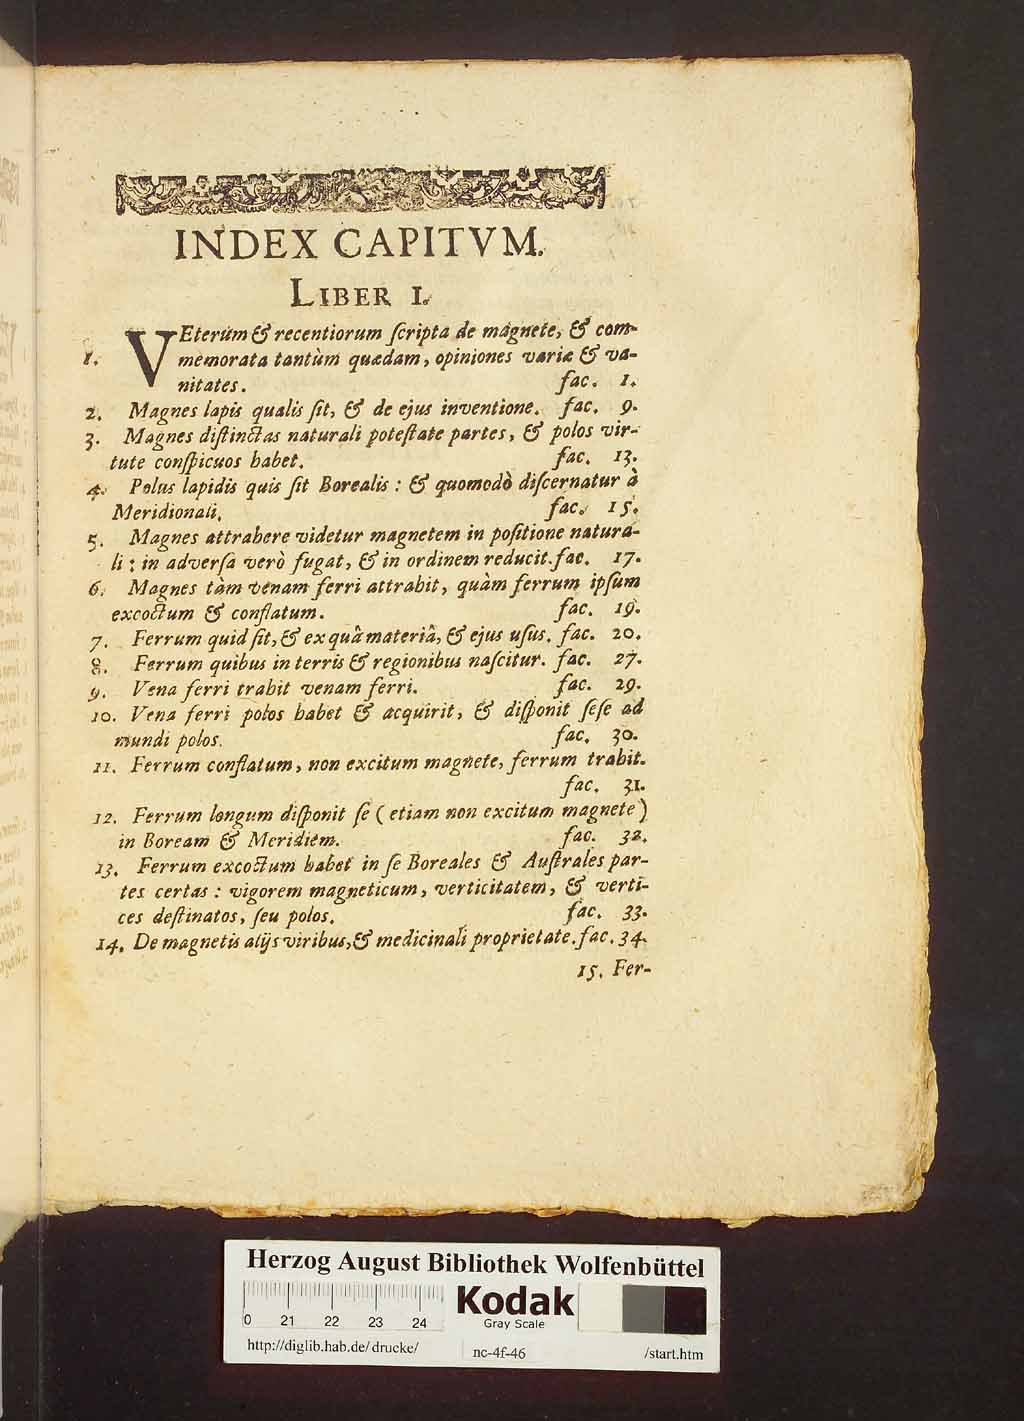 INDEX CAPITVM.
LIBER I.
1. VEterùm & recentiorum ſcripta de magnete, & com-
memorata tantùm quædam, opiniones variæ & va-
nitates. fac. 1.
2. Magnes lapis qualis ſit, & de ejus inventione. fac. 9.
3. Magnes diſtinctas naturali poteſtate partes, & polos vir-
tute conſpicuos habet. fac. 13.
4. Polus lapidis quis ſit Borealis : & quomodò diſcernatur à
Meridionali. fac. 15.
5. Magnes attrahere videtur magnetem in poſitione natura-
li : in adverſa verò fugat, & in ordinem reducit. fac. 17.
6. Magnes tàm venam ferri attrahit, quàm ferrum ipſum
excoctum & conflatum. fac. 19.
7. Ferrum quid ſit, & ex quâ materiâ, & ejus uſus. fac. 20.
8. Ferrum quibus in terris & regionibus naſcitur. fac. 27.
9. Vena ferri trahit venam ferri. fac. 29.
10. Vena ferri polos habet & acquirit, & diſponit ſeſe ad
mundi polos. fac. 30.
11. Ferrum conflatum, non excitum magnete, ferrum trahit.
fac. 31.
12. Ferrum longum diſponit ſe ( etiam non excitum magnete )
in Boream & Meridiem. fac. 32.
13. Ferrum excoctum habet in ſe Boreales & Auſtrales par-
tes certas : vigorem magneticum, verticitatem, & verti-
ces deſtinatos, ſeu polos. fac. 33.
14. De magnetis alijs viribus, & medicinali proprietate. fac. 34.
15. Fer-
Herzog August Bibliothek Wolfenbüttel
0 21 22 23 24
Kodak
Gray Scale
http://diglib.hab.de/drucke/ nc-4f-46 /start.htm